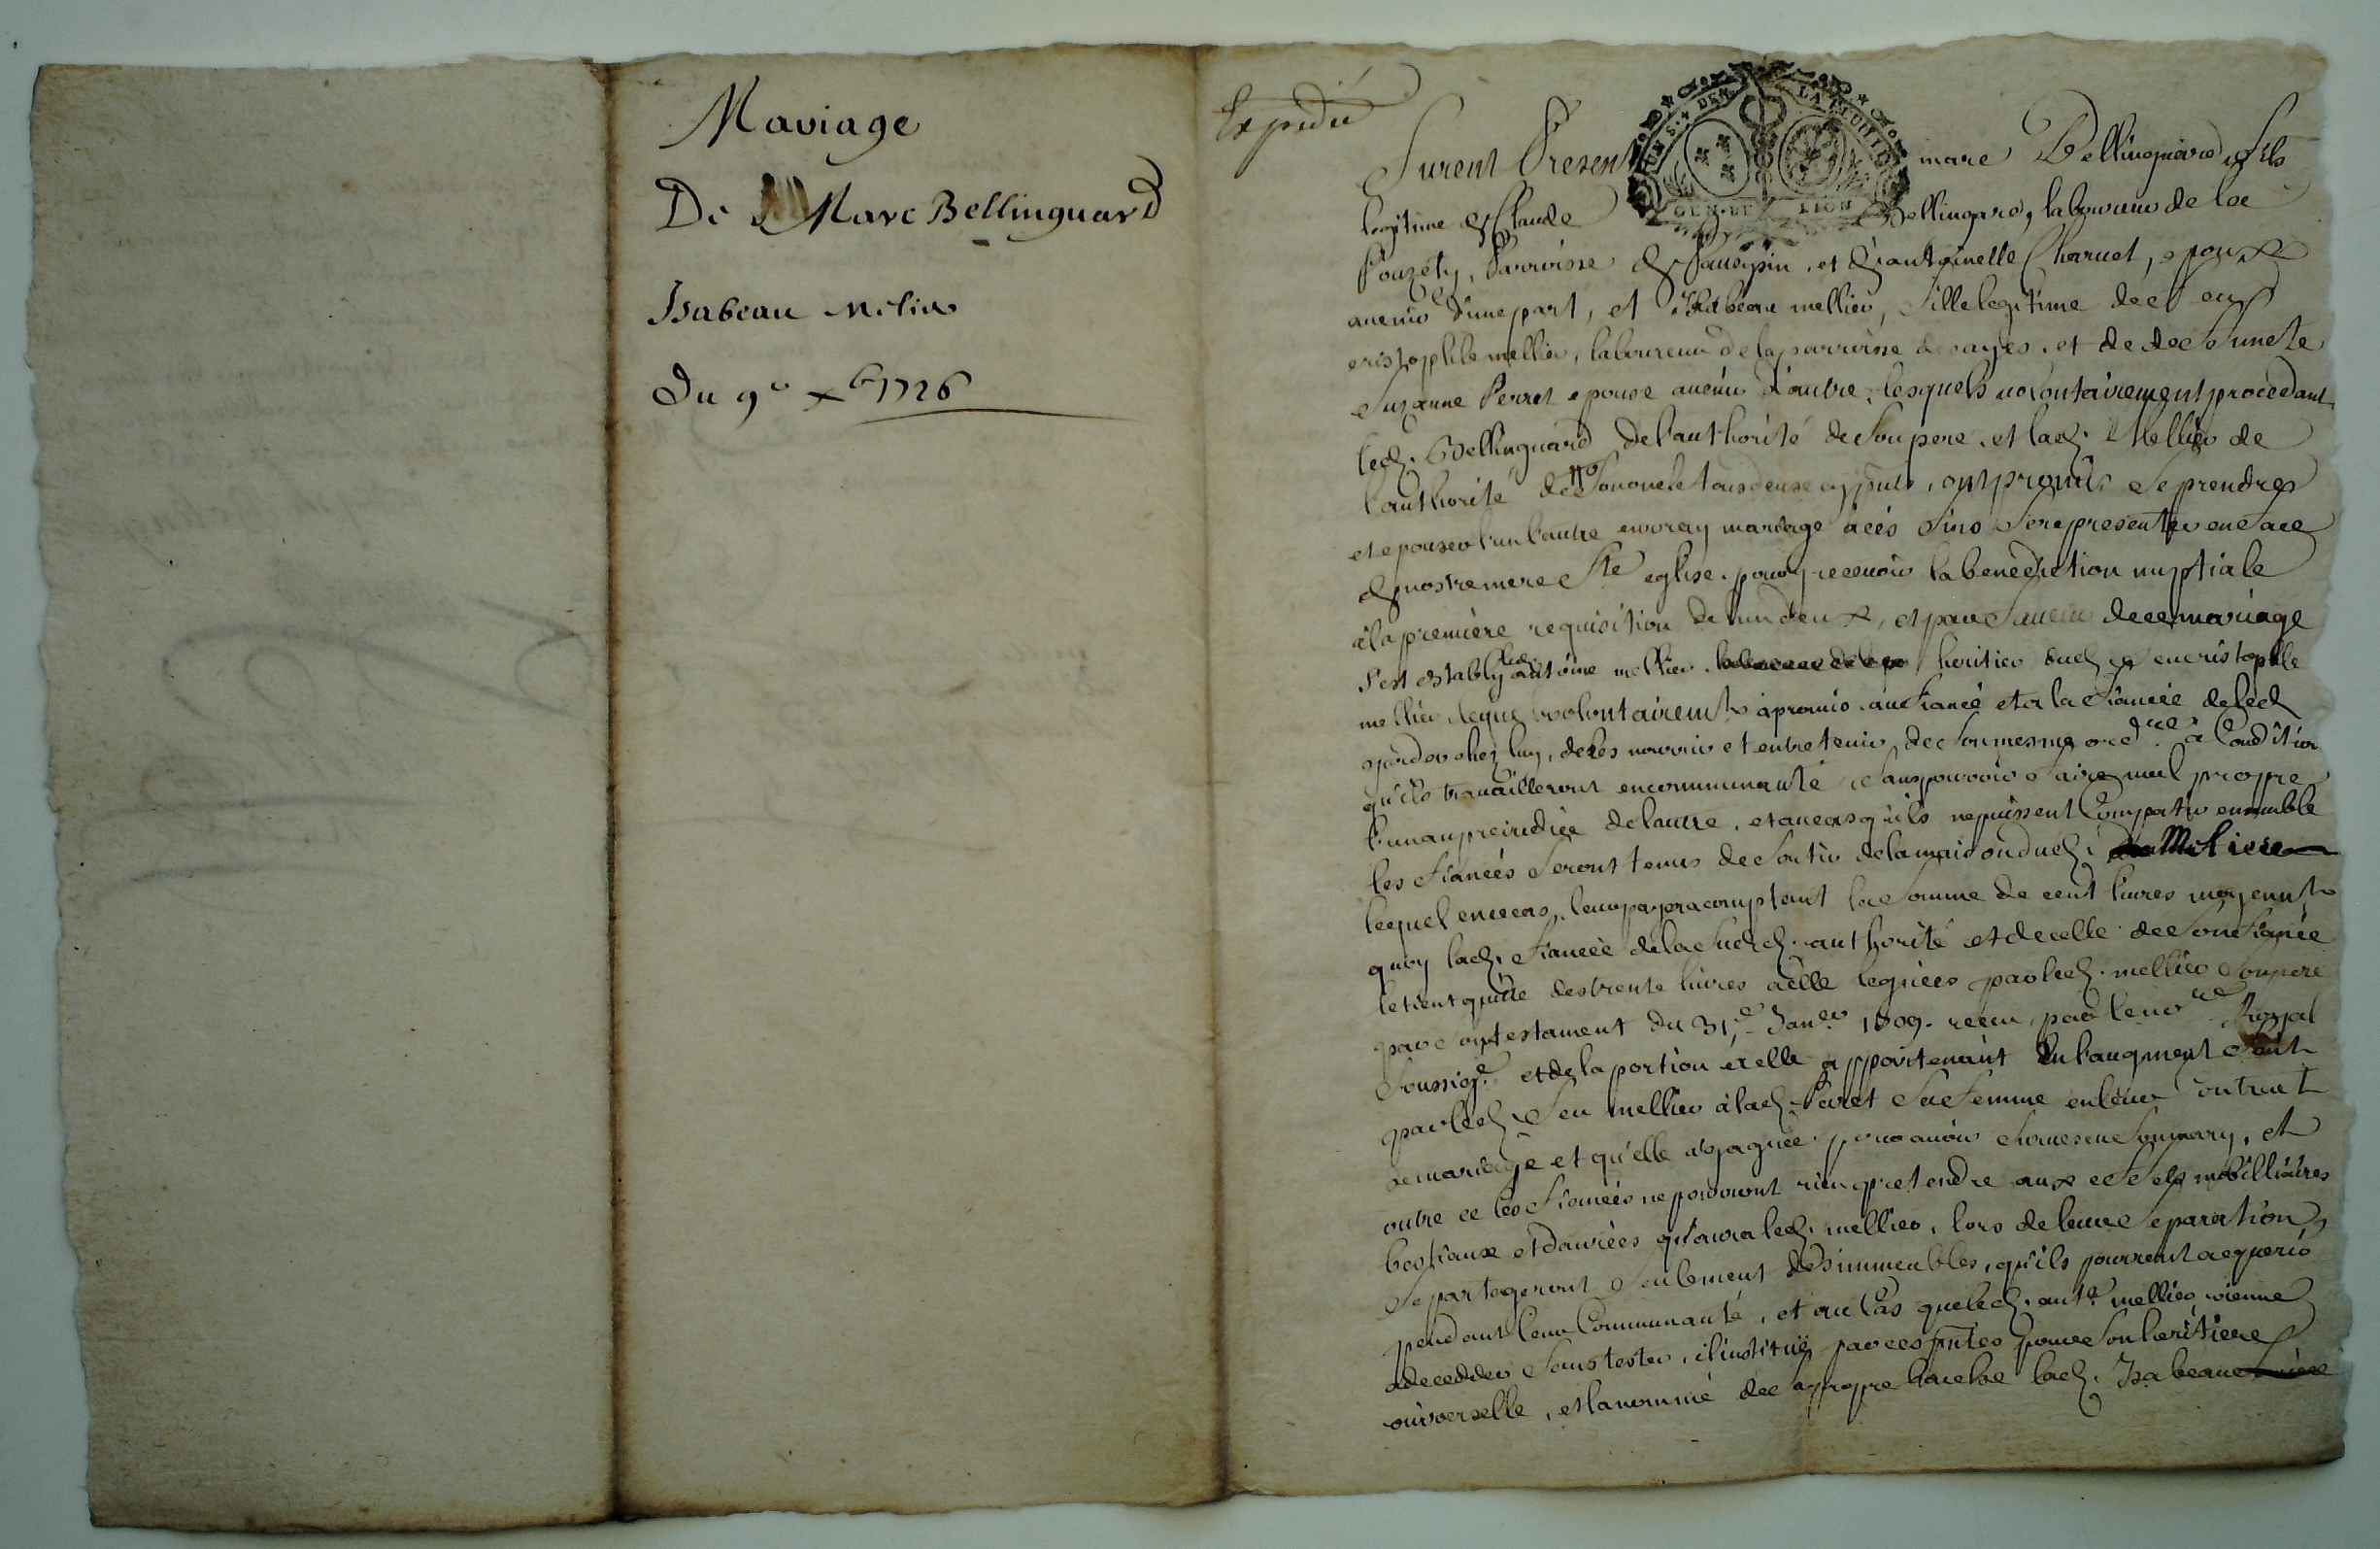 Mariage
De Marc Bellinguard
Isabeau Melier
Du 9e xbre 1726
Expedié
Furent Presents marc Bellinguard fils
UN S. 4 DEN. LA FEUILLE
GEN. DE LION
legitime de Claude Bellingard, laboureur de
Pouzély, Parroisse de, et d'antoinette Charuet, epoux
avenir d'une part, et Isabeau mellier, fille legitime de feu
cristophle mellier, laboureur de la parroisse de sayes, et de deffuncte
Suzanne Perret epouse avenir d'autre, lesquels volontairement procedant
led. Bellinguard de l'authorité de son pere, et lad. Mellier de
l'authorité de tous deux cy pnts, ont promis se prendre
et epouser l'un l'autre en vray mariage à ces fins se representer en face
de nostre mere Ste eglise, pour y recevoir la benediction nuptiale
à la premiere requisition de l'un d'eux, et par faveur de ce mariage
s'est estably antoine mellier heritier dud. feu cristophle
mellier, lequel volontairemt a promis au fiancé et à la fiancée de les
garder chez luy, de les nourrir et entretenir de son mesme ordre à Condition
qu'ils travailleront en communauté sans pouvoir faire nul propre
l'un au preiudice de l'autre, et au cas qu'ils ne puissent Compatir ensemble
les fiancés seront tenus de sortir de la maison dud. Meliere
lequel en ce cas, leur payera comptant la somme de cent livres moyennt
quoy lad. fiancée de la susd. authorité et de celle de son fiancé
le tient quitte des trente livres à elle leguées par led. mellier son pere
par son testament du 31e Janer 1709. receu par le nore Royal
soussigé et de la portion a elle appartenant en l'augment fait
par led. feu mellier à lad. Perret sa femme en leur Contract
de mariage et qu'elle a gagnée pour avoir son mary, et
outre ce les fiancés ne pourront rien pretendre aux effets mobilliaires
bestiaux et danrées qu'aura led. mellier, lors de leur separation,
se partageront seulement des immeubles, qu'ils pourront acquerir
pendant leur Communauté, et au Cas que led. ante mellier vienne
a decedder sans tester, il institue par ces pntes pour son heritiere
universelle, et la nommé de sa propre bouche lad. Isabeau